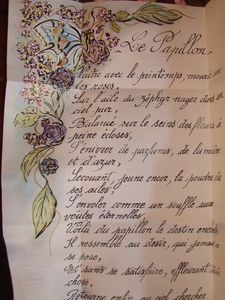 Le Papillon
Naître avec le printemps, mourir
les roses,
Sur l'aile du zéphyr nager dans
ciel pur,
Balancé sur le seins des fleurs à
peine écloses,
S'enivrer de parfums, de lumière
et d'azur,
Secouant, jeune encor, la poudre de
ses ailes,
S'envoler comme un souffle aux
voûtes éternelles,
Voilà du papillon le destin
Il ressemble au désir, qui jamais
se pose,
Et sans se satisfaire, effleurant
chose,
Retourne enfin au ciel chercher